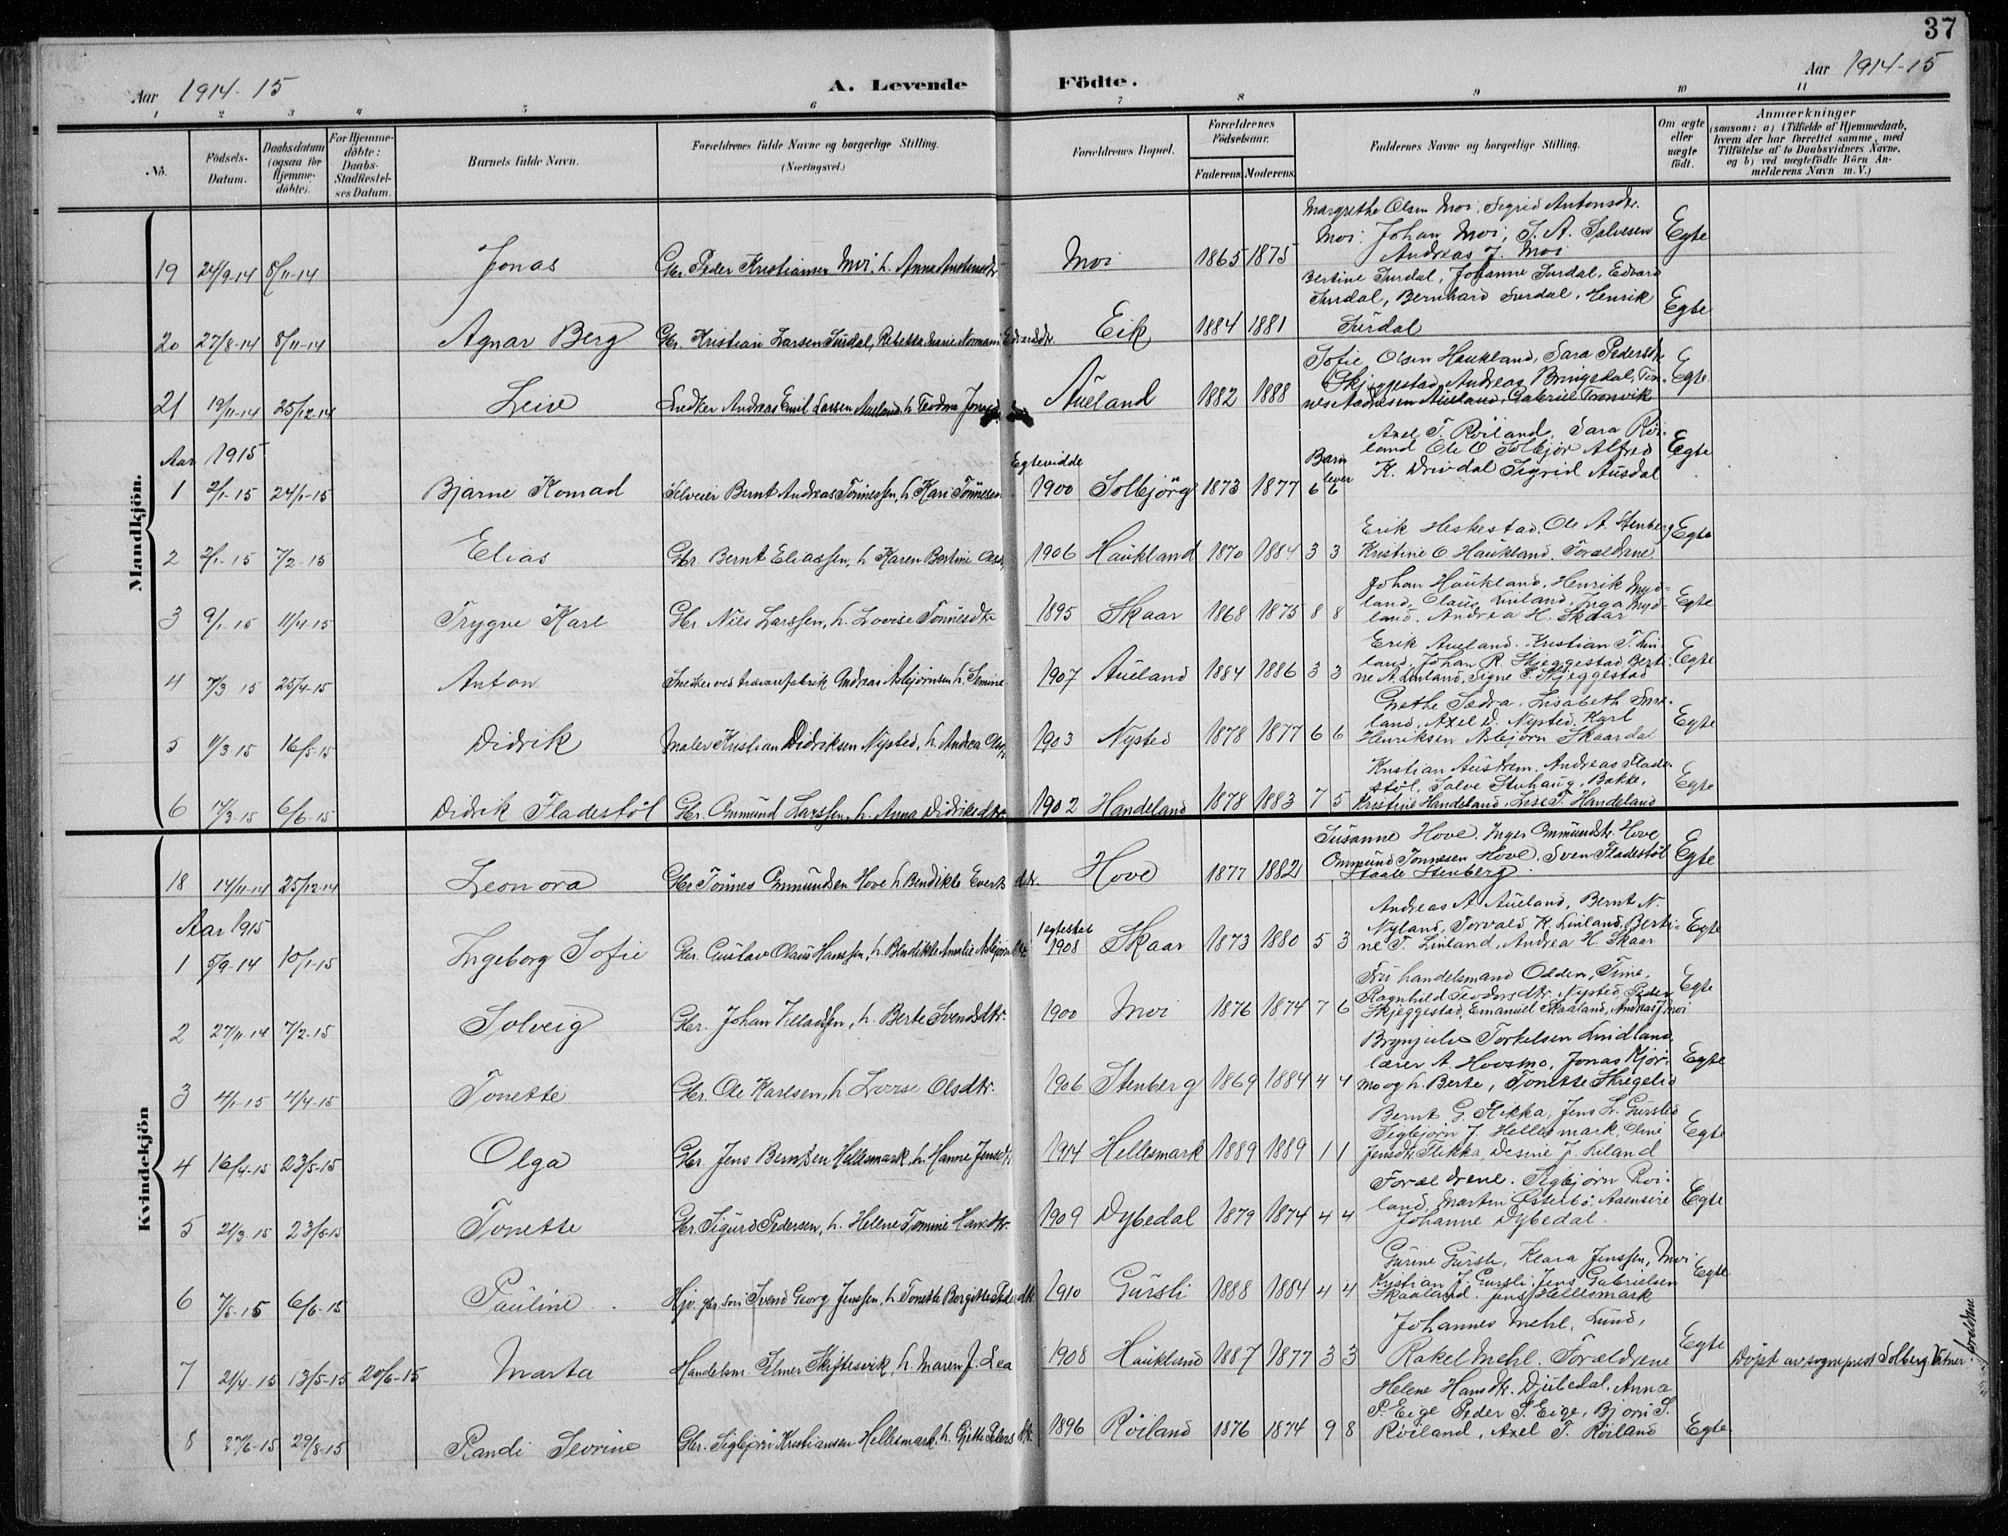 37
Aar 1914-15
A. Levende Födte.
Aar 1914-15
1 2 3 4 5 6 7 8 9 10 11
Nö.
Födsels-Datum.
Daabsdatum (ogsaa for Hjemme-döbte).
For Hjemme-döbte: Daabs-Stadfæstel-ses Datum.
Barnets fulde Navn.
Forældrenes fulde Navne og borgerlige Stilling. (Næringsvei.)
Forældrenes Bopæl.
Forældrenes Födselsaar.
Faderens. Moderens.
Faddernes Navne og borgerlige Stilling.
Om ægte eller uægte födt.
Anmærkninger
(saasom: a) i Tilfælde af Hjemmedaab, hvem der har forrettet samme, med Tilföielse af to Daabsvidners Navne, og b) ved uægtefödte Börn An-melderens Navn m. V.)
Mandkjön.
19 24/9-14 8/11-14 Jonas Gbr. Peder Kristiansen Moi h. Anna Antonsdtr Moi 1865 1875 Margrethe Olsen Moi, Sigrid Antonsdtr. Moi, Johan Moi, S. A. Salvesen Andreas J. Moi Egte
20 27/8-14 8/11-14 Agnar Berg Gbr. Kristian Larsen Surdal, Rebekka Marie Normann Edvardsdtr. Eik 1884 1881 Bertine Surdal, Johanne Surdal, Edvard Surdal, Bernhard Surdal, Henrik Surdal Egte
21 19/11-14 25/12-14 Leiv Snedker Andreas Emil Larsen Aueland, h. Teodora Aueland 1882 1888 Sofie Olsen Haukland, Sara Pedersdtr Skjeggestad, Andreas Bringedal, Aueland, Gabriel Egte
Aar 1915
Egtevidde Barn lever
1 2/1-15 24/1-15 Bjarne Konrad Selveier Bernt Andreas Tönnessen, h. Kari Tönnesen 1900 Solbjörg 1873 1877 6 6 Axel T. Röiland, Sara Röiland Ole O Solbjör Alfred K. Drivdal Sigrid Ausdal Egte
2 2/1-15 7/2-15 Elias Gbr. Bernt Eliassen, h Karen Bertine 1906 Haukland 1870 1884 3 3 Erik Heskestad, Ole A. Stenberg, Kristine O. Haukland. Forældrene Egte
3 9/1-15 11/4-15 Trygve Karl Gbr. Nils Larssen, h. Lovise Tönnesdtr 1895 Skaar 1868 1875 8 8 Johan Haukland, Henrik Mydland, Olaus Linland, Inga Mydland, Andrea H. Skaar Egte
4 7/3 15 25/4-15 Anton Snedker ved trævarefabrik Andreas Asbjörnsen h. Semine 1907 Aueland 1884 1886 3 3 Erik Aueland, Kristian T. Linland, Johan R. Skjeggestad, Bertine A. Linland, Signe Skjeggestad Egte
5 4/3 15 16/5-15 Didrik Maler Kristian Didriksen Nysted, h. Andrea 1903 Nysted 1878 1877 6 6 Grethe Lisabeth Axel D. Nysted, Karl Henriksen Asbjörn Egte
6 17/3-15 6/6-15 Didrik Fladestöl Gbr. Ommund Larssen, h. Anna Didriksdtr. 1902 Handeland 1878 1883 7 5 Kristian Austrem, Andreas Fladestöl, Salve Stuhaug, Bakke, Kristine Handeland, Lise T. Handeland Egte
Kvindekjön
18 14/11-14 25/12-14 Leonora Gbr. Tönnes Ommundsen Hove h Bendikte Evertsdtr. Hove 1877 1882 Susanne Hove, Inger Ommundsdtr. Hove, Ommund Tönnesen Hove, Sven Fladestöl Staale Stenberg. Egte
Aar 1915
1 5/9-14 10/1-15 Ingeborg Sofie Gbr. Gustav Olaus Hanssen, h. Bendikte Amalie 1908 Skaar 1873 1880 5 3 Andreas A Aueland, Bernt N. Nyland, Torvald K. Linland, Bertine T. Linland, Andrea H. Skaar Egte
2 27/11-14 7/2-15 Solveig Gbr. Johan Villadsen, h. Berte Svendsdtr. 1900 Moi 1876 1874 7 6 Fru handelsmand Odden, Time, Ragnhild Teodorsdtr. Nysted, Peder Skjeggestad, Emanuel Skaaland, Andreas J. Moi Egte
3 4/1-15 4/4-15 Tonette Gbr. Ole Karlsen, h Lovise Olsdtr. 1906 Stenberg 1869 1884 4 4 Brynjulv Torkelsen Lindland lærer A. Hovsmo, Jonas og h. Berte, Tonette Skregelid Egte
4 16/4-15 23/5-15 Olga Gbr. Jens Berntsen Hellesmark, h. Hanne Jensdtr 1914 Hellesmark 1889 1889 1 1 Bernt G. Flikka, Jens L. Gursli Sigbjörn J. Hellesmark, Oline Jensdtr Flikka, Desine J. Egte
5 21/3 15 23/5-15 Tonette Gbr. Sigurd Pedersen, h. Helene Tomine Hansdtr. 1909 Dybedal 1879 1874 4 4 Forældrene. Sigbjörn Röiland, Martin Österbö, Johanne Dybedal. Egte
6 7/5-15 6/6-15 Pauline Svend Georg Jenssen, h. Tonette Borgitte 1910 Gursli 1888 1884 4 4 Gurine Gursli, Klara Jenssen, Moi Kristian J. Gursli, Jens Gabrielsen Skaaland. Jens Hellesmark Egte
7 21/4-15 13/5-15 20/6-15 Marta Handelsm. Elmer h. Maren J. Lea 1908 Haukland 1887 1877 3 3 Johannes Mehl, Lund, Rakel Mehl. Forældrene Egte Döpt av sogneprest Solberg. Vitner: forældrene
8 27/6-15 29/8-15 Randi Sevrine Gbr. Sigbjörn Kristiansen Hellesmark, h. Gjette 1896 Röiland 1876 1874 9 8 Helene Hansdtr. Djubedal, Anna P. Eige Peder S. Eige, Bjorn S. Röiland, Axel T. Röiland Egte